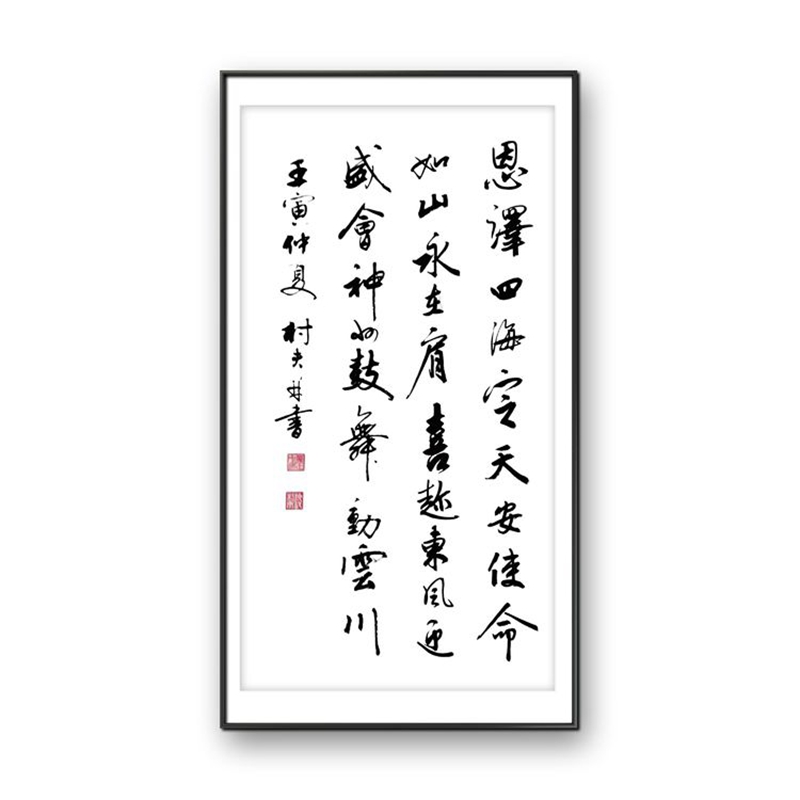 恩澤四海定天安使命
如山永在肩喜趂東風迎
盛會神州鼓舞動雲川
壬寅仲夏村夫并書